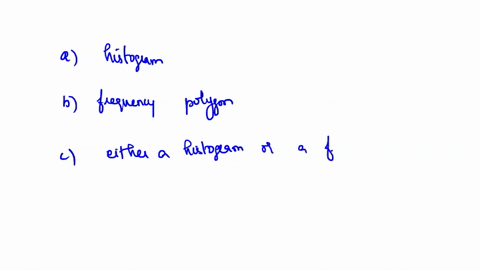 a) histogram
b) frequency polygon
c) either a histogram or a f